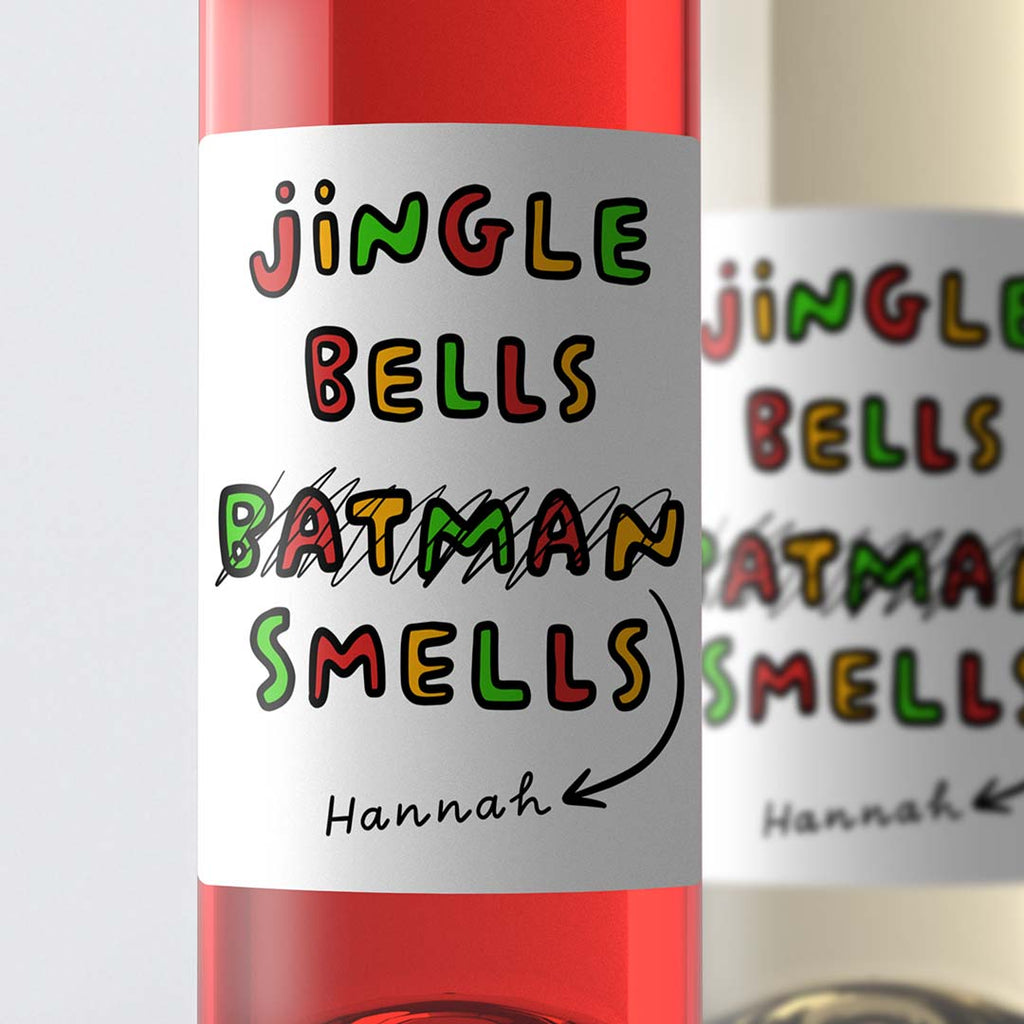 jiNGLE
BELLS
BATMAN
SMELLS
Hannah
jiNGLE
BELLS
BATMAN
SMELLS
Hannah